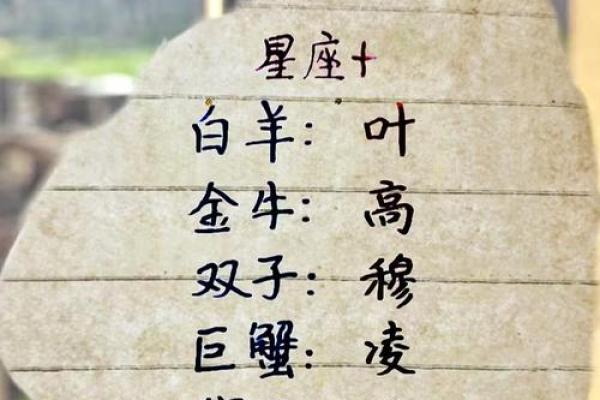 星座+
白羊：叶
金牛：高
双子：穆
巨蟹：凌